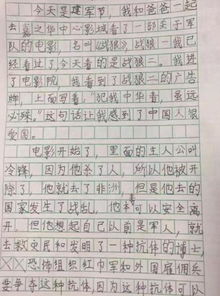 今天是建军节，我和爸爸一起
去之华中心影城看了一部关于军
队的电影，名叫《战狼》，战狼一我已
经看过了今天看的是战狼二。我进
了电影院，我看到了战狼二的广告
牌，上面写着：“犯我中华者，虽远
必殊。”这句话让我感到了中国人很
爱国。
电影开始了，里面的主人公叫
冷锋，因为他杀了人，所以他被开
除了，他就去了非洲，但是他去的
国家发生了战乱，他本可以安全离
开，但他想起自己以前是军人，就
去救灾民和发明了一种抗体的博士，
XX恐怖组织红巾军和外国雇佣兵
要争夺这种抗体，因为这种抗体可以